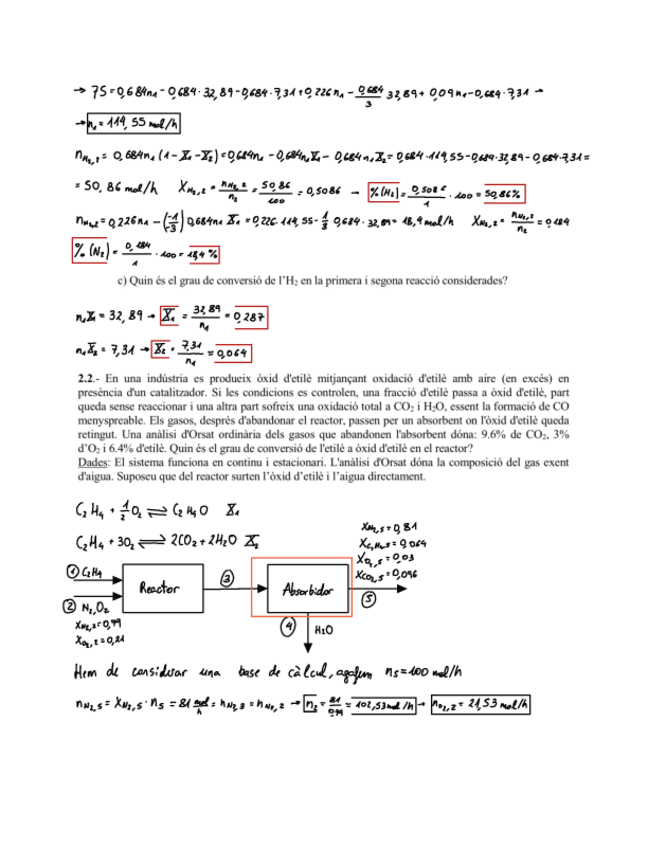 → 75=0,684n₁ - 0,684·32,89-0,684·7,31+0,226n₁ - 0,684/3 32,89+0,09n₁-0,684·7,31 →
→ n₁ = 119,55 mol/h
n_H₂,₂ = 0,684n₁ (1 - X₁ - X₂) = 0,684n₁ - 0,684n₁X₁ - 0,684n₁X₂ = 0,684·119,55-0,684·32,89-0,684·7,31=
= 50,86 mol/h X_H₂,₂ = n_H₂,₂/n₂ = 50,86/100 = 0,5086 → %(H₂) = 0,5086/1 · 100 = 50,86%
n_N₂,₂ = 0,226n₁ - (-1/-3) 0,684n₁ X₁ = 0,226·119,55 - 1/3 0,684·32,89 = 18,4 mol/h X_N₂,₂ = n_N₂,₂/n₂ = 0,184
% (N₂) = 0,184/1 · 100 = 18,4 %
c) Quin és el grau de conversió de l'H₂ en la primera i segona reacció considerades?
n₁X₁ = 32,89 → X₁ = 32,89/n₁ = 0,287
n₁X₂ = 7,31 → X₂ = 7,31/n₁ = 0,064
2.2.- En una indústria es produeix òxid d'etilè mitjançant oxidació d'etilè amb aire (en excés) en
presència d'un catalitzador. Si les condicions es controlen, una fracció d'etilè passa a òxid d'etilè, part
queda sense reaccionar i una altra part sofreix una oxidació total a CO₂ i H₂O, essent la formació de CO
menyspreable. Els gasos, després d'abandonar el reactor, passen per un absorbent on l'òxid d'etilè queda
retingut. Una anàlisi d'Orsat ordinària dels gasos que abandonen l'absorbent dóna: 9.6% de CO₂, 3%
d'O₂ i 6.4% d'etilè. Quin és el grau de conversió de l'etilè a òxid d'etilè en el reactor?
Dades: El sistema funciona en continu i estacionari. L'anàlisi d'Orsat dóna la composició del gas exent
d'aigua. Suposeu que del reactor surten l'òxid d'etilè i l'aigua directament.
C₂H₄ + 1/2 O₂ ⇌ C₂H₄O X₁
C₂H₄ + 3O₂ ⇌ 2CO₂ + 2H₂O X₂
X_N₂,₅ = 0,81
X_C₂H₄,₅ = 0,064
X_O₂,₅ = 0,03
X_CO₂,₅ = 0,096
① C₂H₄
Reactor
③
Absorbidor
⑤
② N₂,O₂
X_N₂,₂ = 0,79
X_O₂,₂ = 0,21
④ H₂O
Hem de considerar una base de càlcul, agafem n₅ = 100 mol/h
n_N₂,₅ = X_N₂,₅ · n₅ = 81 mol/h = n_N₂,₃ = n_N₂,₂ → n₂ = 81/0,79 = 102,53 mol/h → n_O₂,₂ = 21,53 mol/h